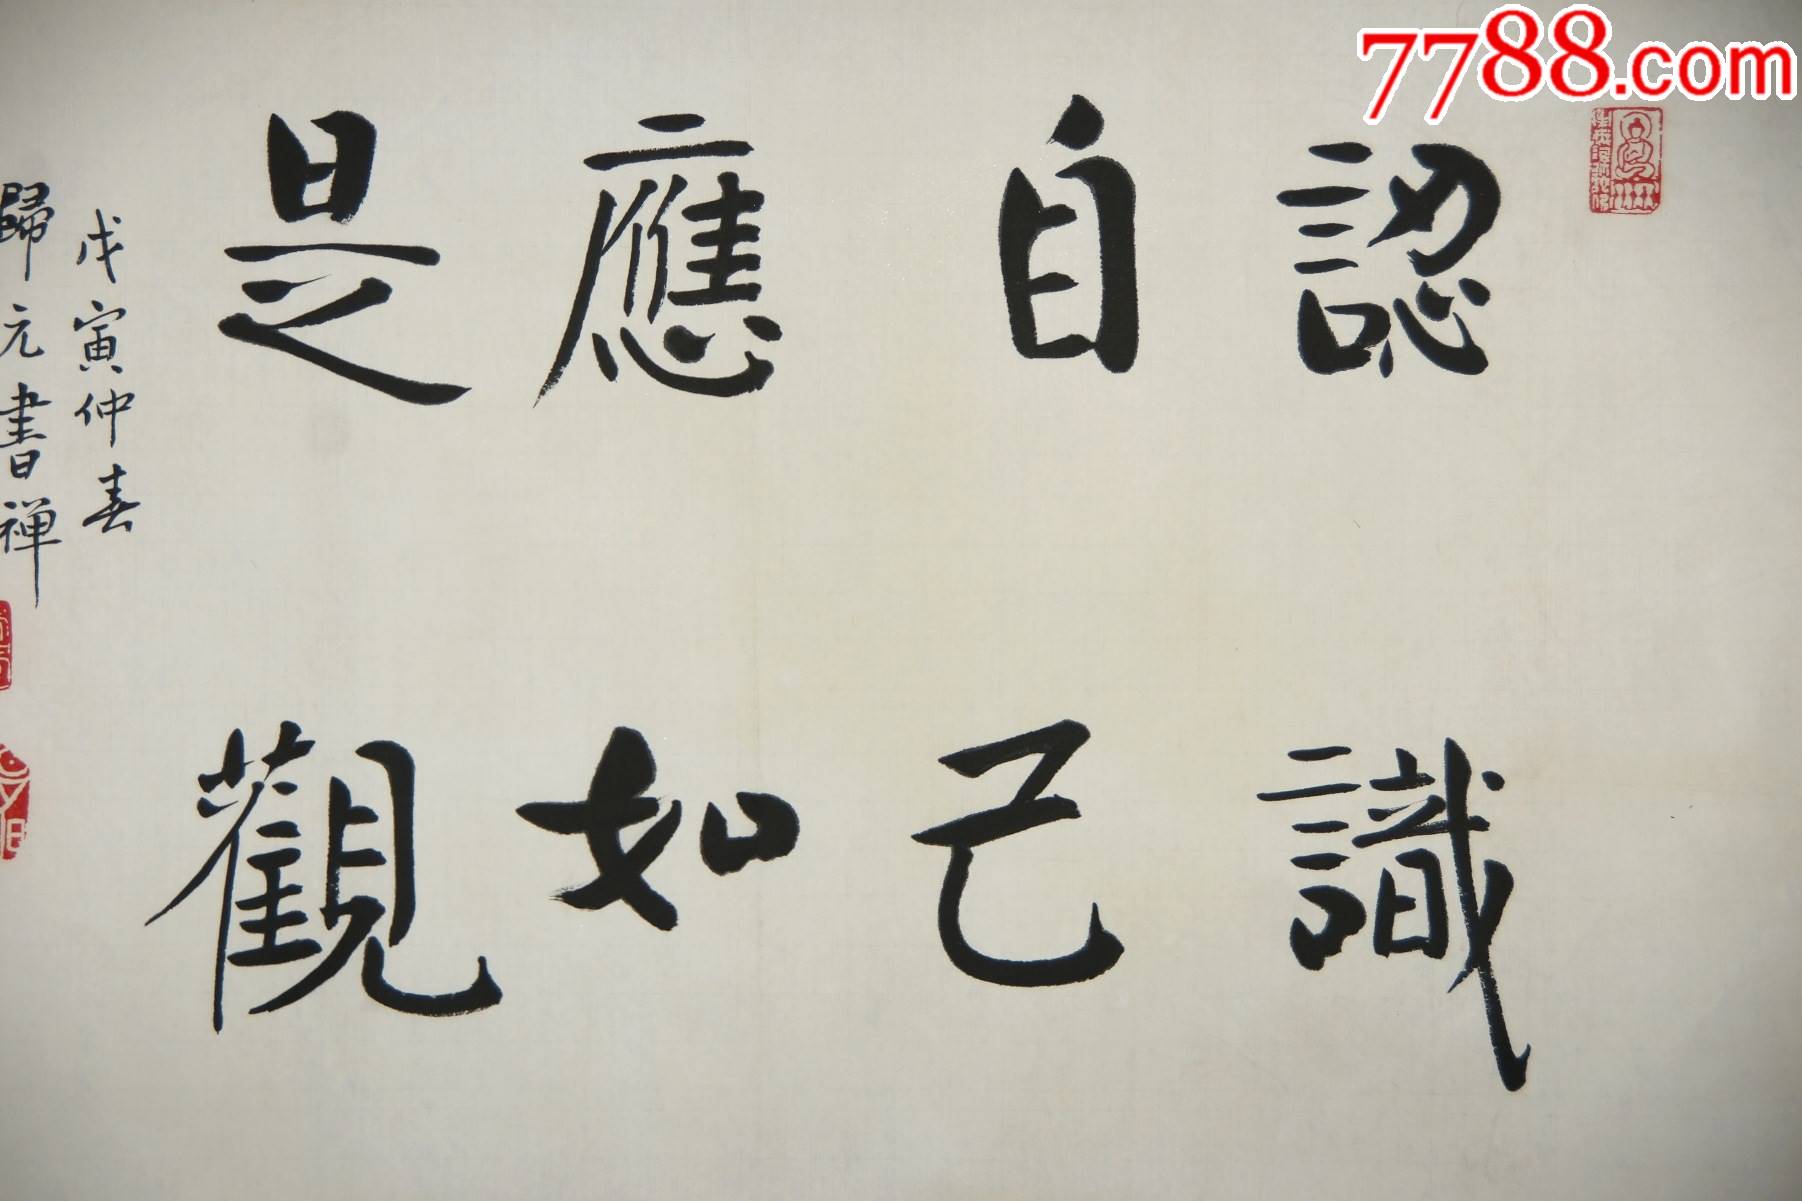 7788.com
認識
自己
應如
是觀
戊寅仲春
歸元書禅